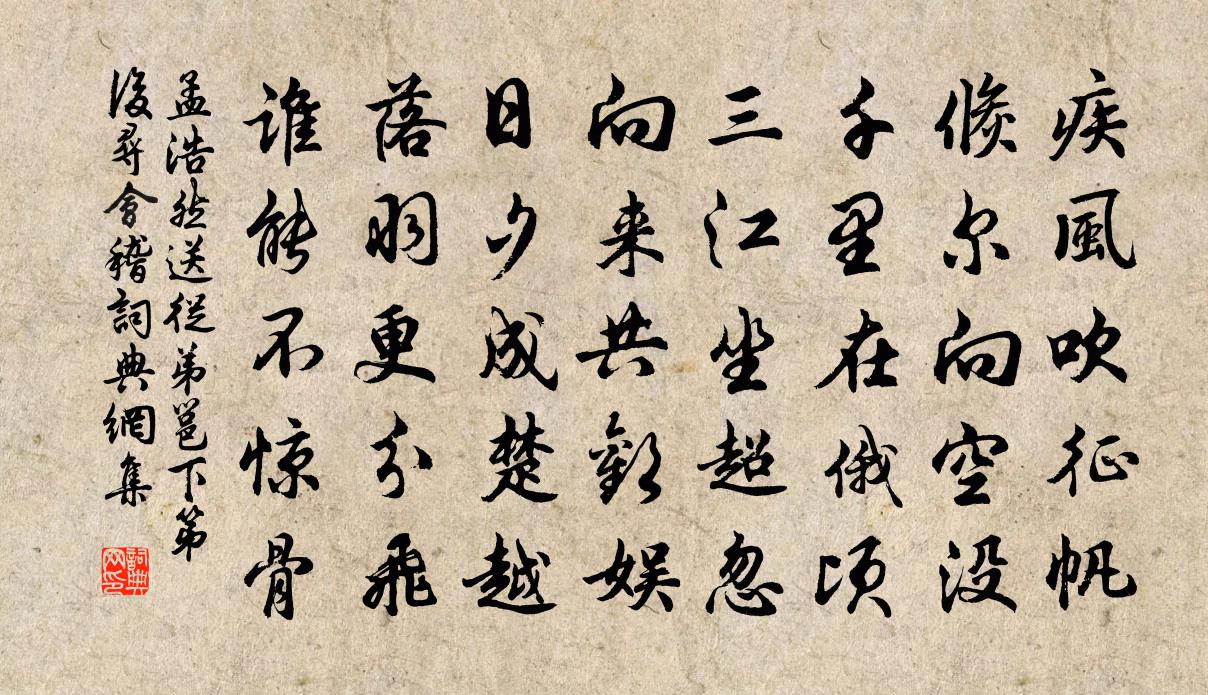 疾風吹征帆
倏尔向空没
千里在俄顷
三江坐超忽
向来共歡娱
日夕成楚越
落羽更分飛
誰能不惊骨
孟浩然送從弟邕下第
後尋會稽詞典網集
詞典網印